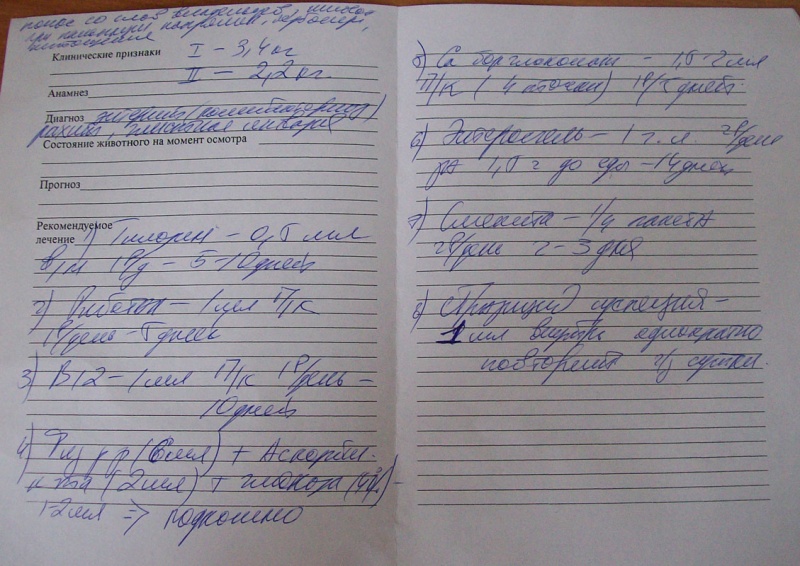 понос со слов владельцев,
при пальпации
истощение
Клинические признаки I – 3,4 кг
II – 2,2 кг.
Анамнез
Диагноз энтерит
рахит, глистная инвазия
Состояние животного на момент осмотра
Прогноз
Рекомендуемое
лечение 1) Тилозин – 0,5 мл
в/м 1р/д – 5-10 дней
2) – 1 мл п/к
1р/день – 5 дней
3) В12 – 1 мл п/к 1р/день –
10 дней
4) Физ р-р (6 мл) + Аскорбин.
к-та (2 мл) + глюкоза –
1-2 мл => подкожно
5) Са борглюконат – 1,5-2 мл
п/к (4 точки) 1р/5 дней.
6) Энтеросгель – 1 г.л. 2р/день
за 1,5 ч до еды – 14 дней
7) Смекта – 1/4 пакета
2р/день 2-3 дня
8) суспензия –
1 мл внутрь однократно
повторить ч/з сутки.